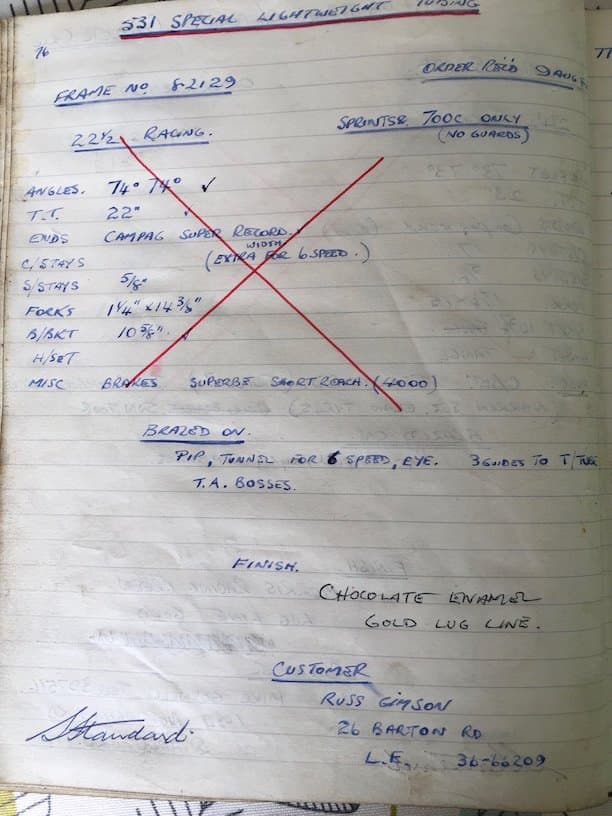 531 SPECIAL LIGHTWEIGHT TUBING
76
77
ORDER REC'D 9 AUG
FRAME NO 82129
SPRINTS 700C ONLY
(NO GUARDS)
22½ RACING.
ANGLES. 74° 74° ✓
T.T. 22"
ENDS CAMPAG SUPER RECORD.
C/STAYS (EXTRA WIDTH FOR 6 SPEED.)
S/STAYS 5/8"
FORKS 1¼" x 14 3/8"
B/BKT 10 5/8"
H/SET
MISC BRAKES SUPERBE SHORT REACH. (4000)
BRAZED ON.
PIP, TUNNEL FOR 6 SPEED, EYE. 3 GUIDES TO T/TUBE
T.A. BOSSES.
FINISH.
CHOCOLATE ENAMEL
GOLD LUG LINE.
CUSTOMER
RUSS GIMSON
26 BARTON RD
L.E. 36-66209
S Standard